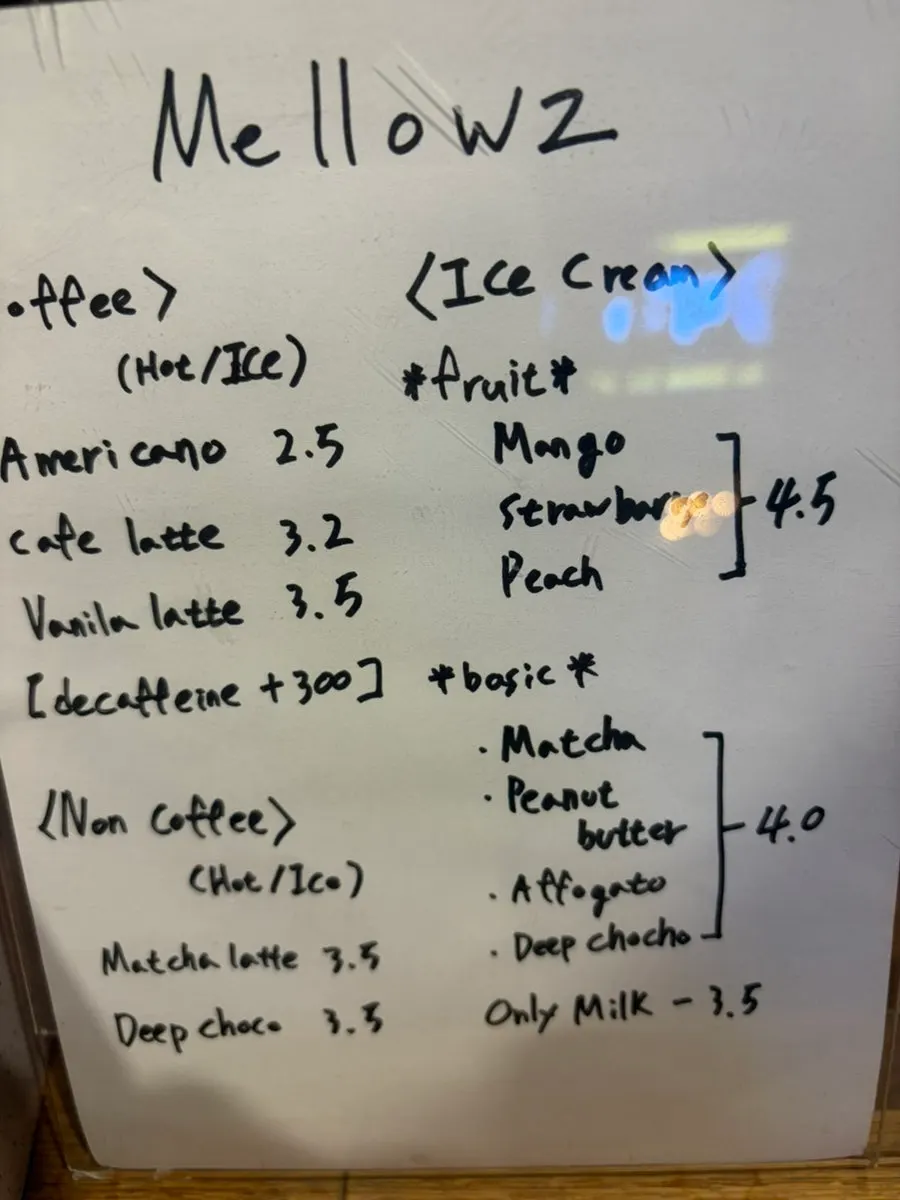 Mellowz
offee>
(Hot/ICE)
Americano 2.5
cafe latte 3.2
Vanila latte 3.5
[decaffeine +300]
<Non coffee>
(Hot/Ice)
Matcha latte 3.5
Deep choco 3.5
<Ice cream>
*fruit*
Mango
Peach
4.5
*basic*
· Matcha
· Peanut
butter
· Affogato
· Deep chocho
4.0
Only Milk - 3.5